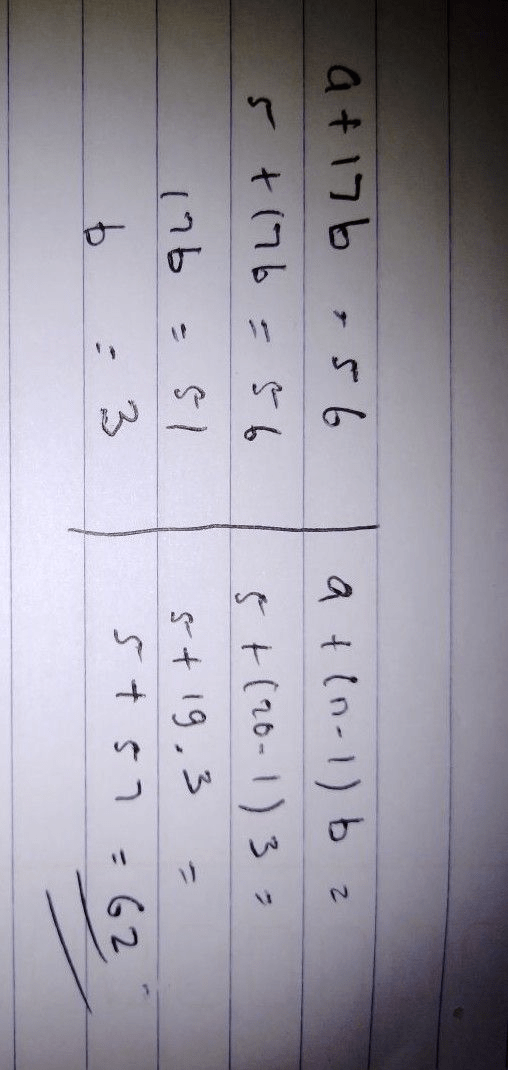 a + 17b = 56
5 + 17b = 56
17b = 51
b = 3
a + (n-1) b =
5 + (20-1) 3 =
5 + 19 . 3 =
5 + 57 = 62